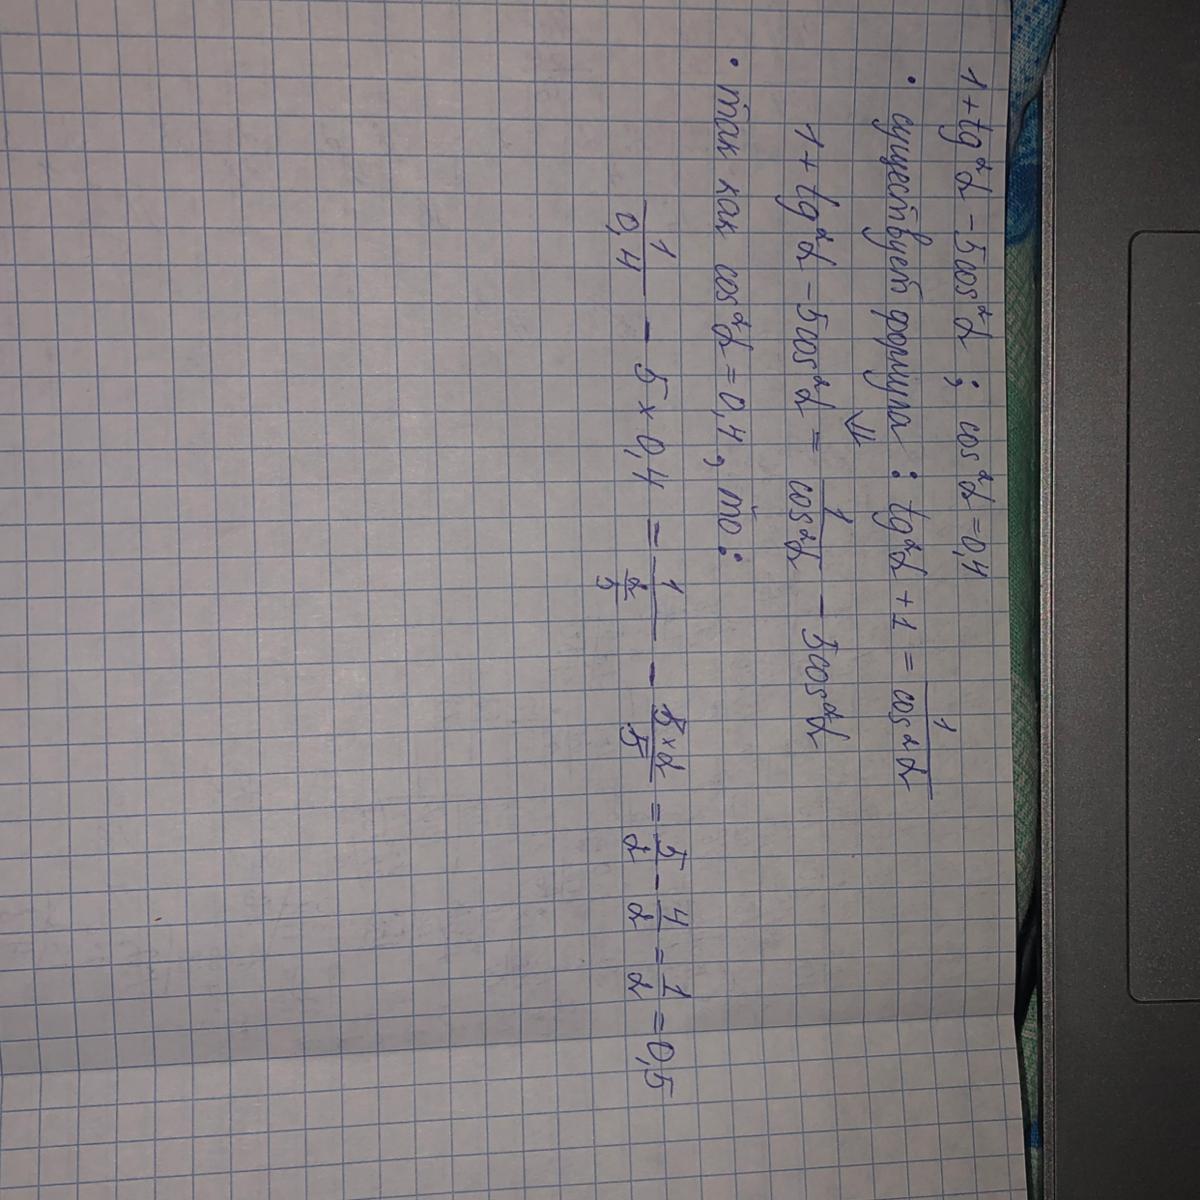 1 + tg²α - 5cos²α ; cos²α = 0,4
• существует формула : tg²α + 1 = 1/cos²α
⇓
1 + tg²α - 5cos²α = 1/cos²α - 5cos²α
• так как cos²α = 0,4, то :
1/0,4 - 5 × 0,4 = 1/(2/5) - (5×2)/5 = 5/2 - 4/2 = 1/2 = 0,5